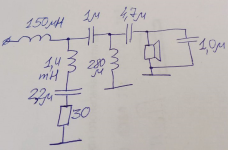 150μH
1м
4,7м
1,4
mH
280
м
1,0м
22м
30